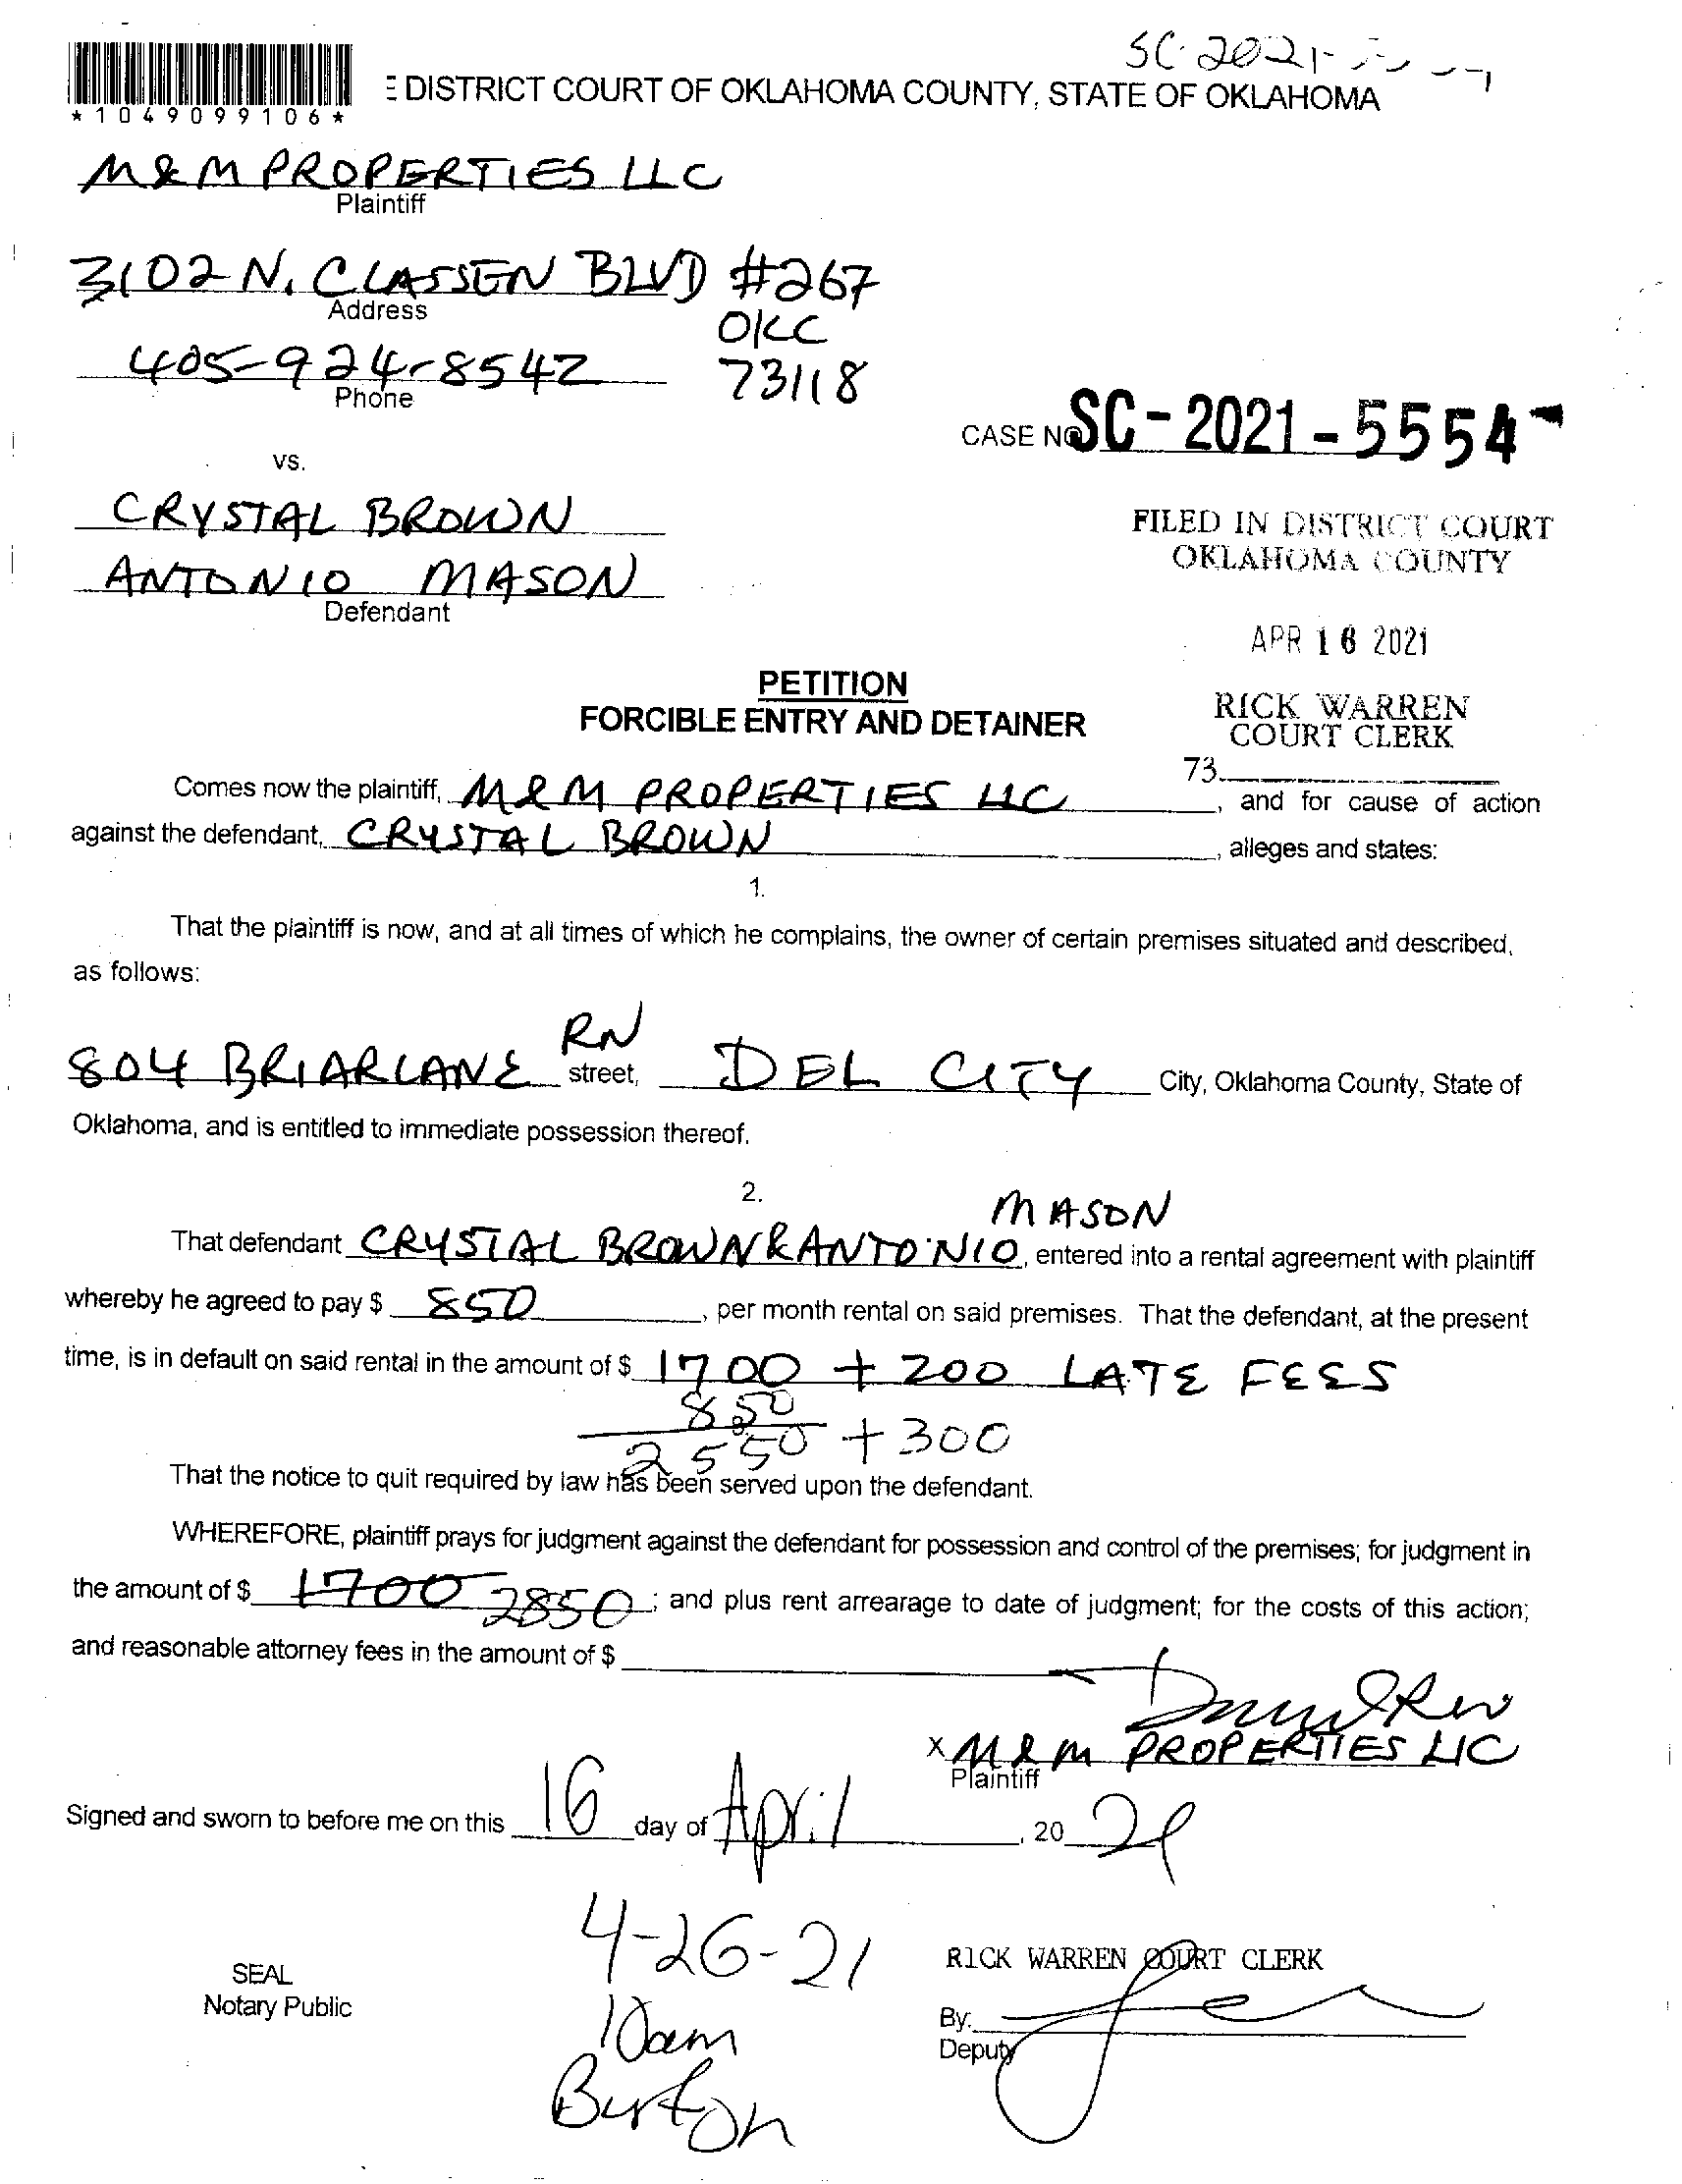 SC-2021-
*1049099106*
E DISTRICT COURT OF OKLAHOMA COUNTY, STATE OF OKLAHOMA
M&M PROPERTIES LLC
Plaintiff
3102 N. CLASSEN BLVD #267
Address
OKC
405-924-8542
73118
Phone
CASE NO SC-2021-5554
vs.
CRYSTAL BROWN
ANTONIO MASON
Defendant
FILED IN DISTRICT COURT
OKLAHOMA COUNTY
APR 16 2021
PETITION
FORCIBLE ENTRY AND DETAINER
RICK WARREN
COURT CLERK
73
Comes now the plaintiff, M&M PROPERTIES LLC, and for cause of action
against the defendant, CRYSTAL BROWN, alleges and states:
1.
That the plaintiff is now, and at all times of which he complains, the owner of certain premises situated and described,
as follows:
RN
804 BRIARLANE street, DEL CITY City, Oklahoma County, State of
Oklahoma, and is entitled to immediate possession thereof.
2.
MASON
That defendant CRYSTAL BROWN & ANTONIO, entered into a rental agreement with plaintiff
whereby he agreed to pay $ 850, per month rental on said premises. That the defendant, at the present
time, is in default on said rental in the amount of $ 1700 + 200 LATE FEES
850
2550 + 300
That the notice to quit required by law has been served upon the defendant.
WHEREFORE, plaintiff prays for judgment against the defendant for possession and control of the premises; for judgment in
the amount of $ 1700 2850; and plus rent arrearage to date of judgment; for the costs of this action;
and reasonable attorney fees in the amount of $
X M&M PROPERTIES LLC
Plaintiff
Signed and sworn to before me on this 16 day of April, 2021
4-26-21
10am
Burton
SEAL
Notary Public
RICK WARREN COURT CLERK
By.
Deputy